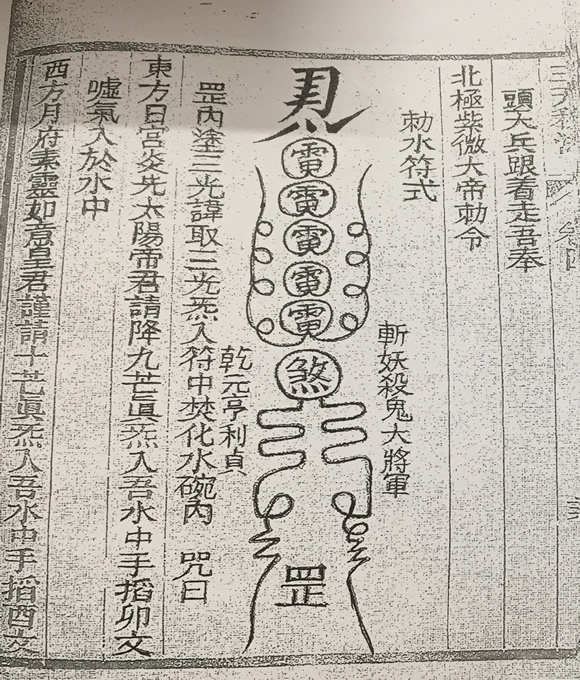 頭大兵跟着走吾奉
北極紫微大帝勅令
勅水符式
斬妖殺鬼大將軍
電
電
電
電
電
煞
罡
乾元亨利貞
罡內塗三光諱取三光炁入符中焚化水碗內 咒曰
東方日宮炎光太陽帝君請降九芒眞炁入吾水中手搯卯文
噓氣入於水中
西方月府素靈如意皇君謹請十芒眞炁入吾水中手搯酉文